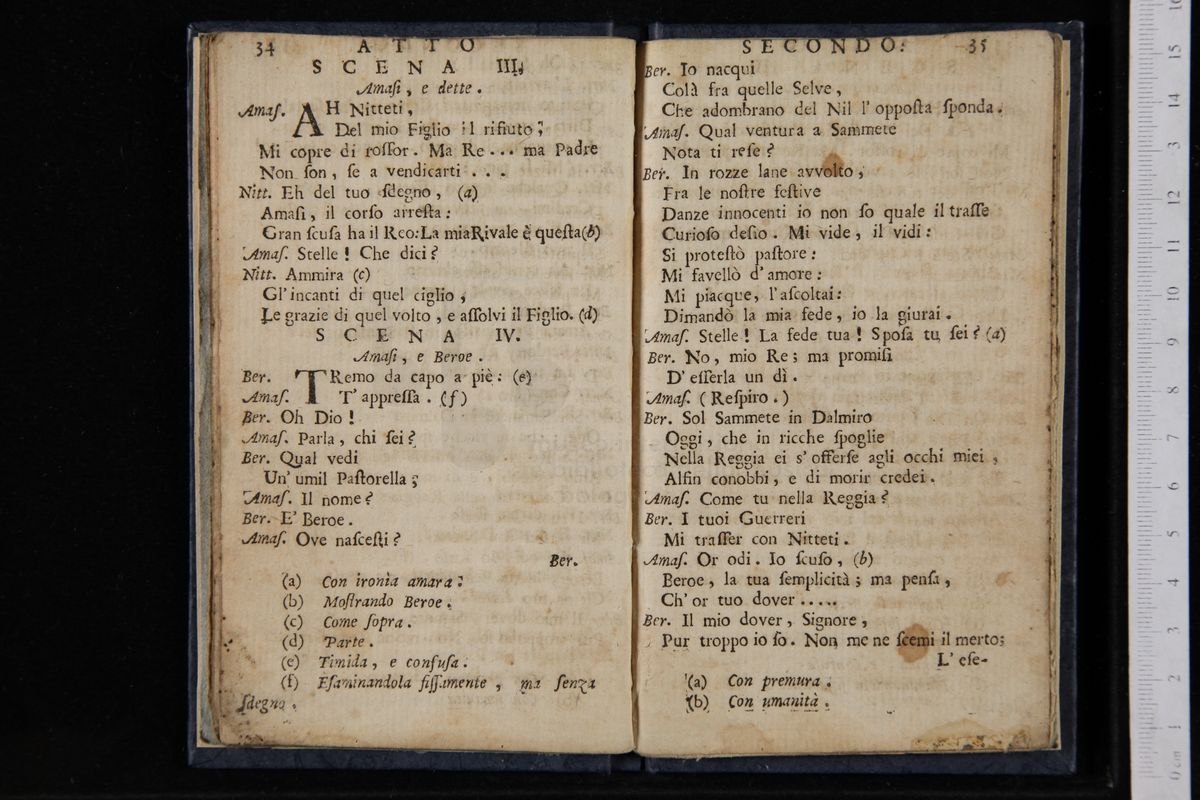 34 ATTO
SCENA III.
Amaſi, e dette.
Amaſ. AH Nitteti,
Del mio Figlio il rifiuto;
Mi copre di roſſor. Ma Re... ma Padre
Non ſon, ſe a vendicarti...
Nitt. Eh del tuo ſdegno, (a)
Amaſi, il corſo arreſta:
Gran ſcuſa ha il Reo: La mia Rivale è queſta (b)
Amaſ. Stelle! Che dici?
Nitt. Ammira (c)
Gl'incanti di quel ciglio,
Le grazie di quel volto, e aſſolvi il Figlio. (d)
SCENA IV.
Amaſi, e Beroe.
Ber. TRemo da capo a piè: (e)
Amaſ. T'appreſſa. (f)
Ber. Oh Dio!
Amaſ. Parla, chi ſei?
Ber. Qual vedi
Un'umil Paſtorella;
Amaſ. Il nome?
Ber. E' Beroe.
Amaſ. Ove naſceſti?
Ber.
(a) Con ironia amara:
(b) Moſtrando Beroe.
(c) Come ſopra.
(d) Parte.
(e) Timida, e confuſa.
(f) Eſaminandola fiſſamente, ma ſenza
ſdegno.
SECONDO. 35
Ber. Io nacqui
Colà fra quelle Selve,
Che adombrano del Nil l'oppoſta ſponda.
Amaſ. Qual ventura a Sammete
Nota ti reſe?
Ber. In rozze lane avvolto,
Fra le noſtre feſtive
Danze innocenti io non ſo quale il traſſe
Curioſo deſio. Mi vide, il vidi:
Si proteſtò paſtore:
Mi favellò d'amore:
Mi piacque, l'aſcoltai:
Dimandò la mia fede, io la giurai.
Amaſ. Stelle! La fede tua! Spoſa tu ſei? (a)
Ber. No, mio Re; ma promiſi
D'eſſerla un dì.
Amaſ. (Reſpiro.)
Ber. Sol Sammete in Dalmiro
Oggi, che in ricche ſpoglie
Nella Reggia ei s'offerſe agli occhi miei,
Alfin conobbi, e di morir credei.
Amaſ. Come tu nella Reggia?
Ber. I tuoi Guerreri
Mi traſſer con Nitteti.
Amaſ. Or odi. Io ſcuſo, (b)
Beroe, la tua ſemplicità; ma penſa,
Ch'or tuo dover.....
Ber. Il mio dover, Signore,
Pur troppo io ſo. Non me ne ſcemi il merto;
L'eſe-
(a) Con premura.
(b) Con umanità.